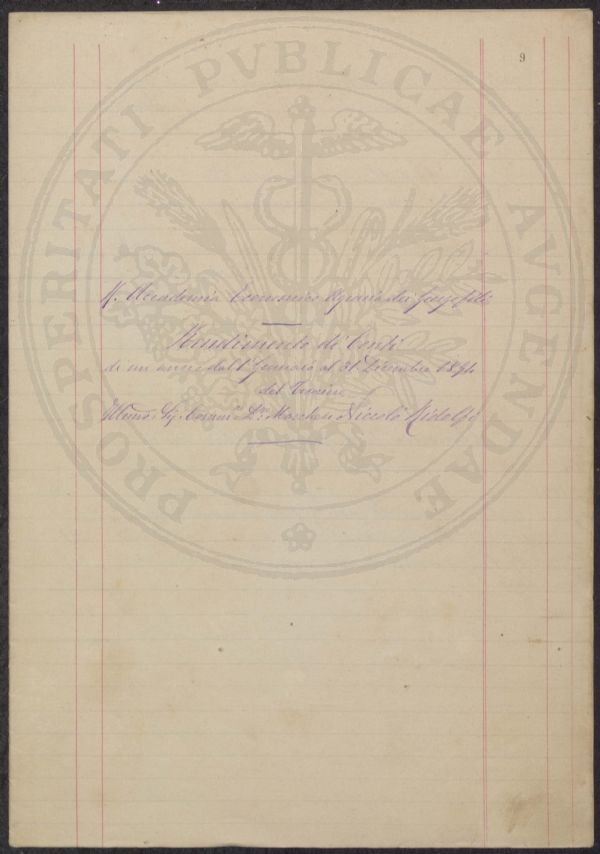 9
PROSPERITATI PVBLICAE AVGENDAE
R. Accademia Economico Agraria dei Georgofili
Rendimento di Conti
di un anno dal 1 Gennaio al 31 Dicembre
del
Illmo. Sig. Dr. Marchese Niccolò Ridolfi